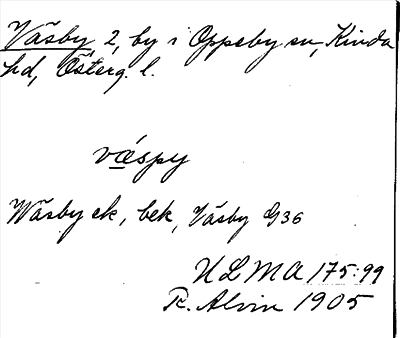 Väsby 2, by i Oppeby sn, Kinda
hd, Österg. l.
väspy
Wäsby ek, bek, Väsby G36
ULMA 175:99
R. Alvin 1905